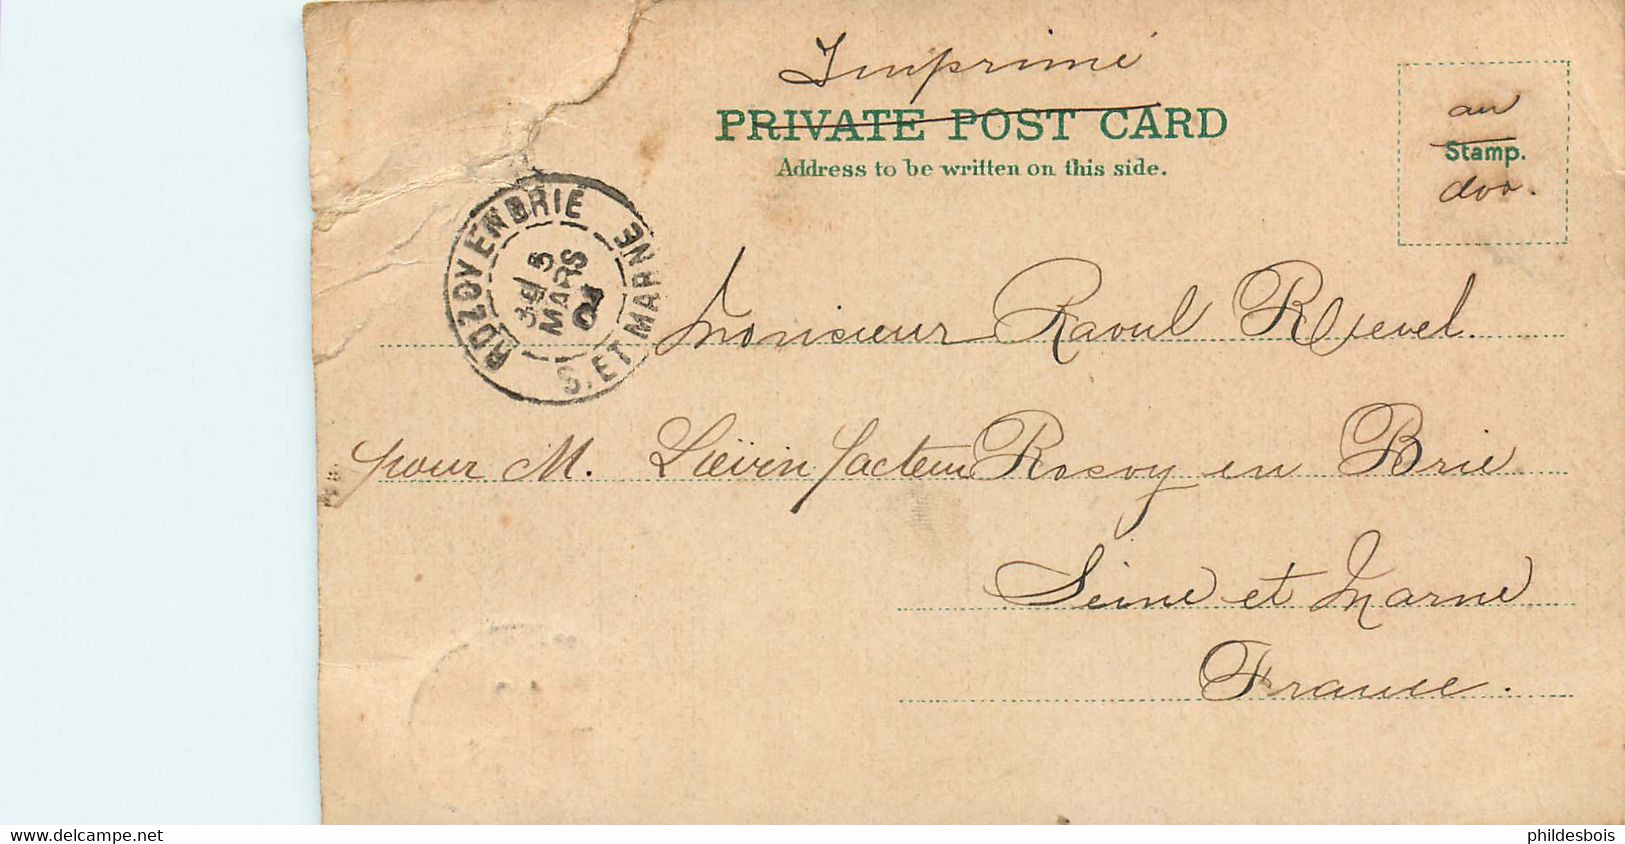 Imprimé
PRIVATE POST CARD
Address to be written on this side.
au
Stamp.
dos.
ROZOY EN BRIE
S. ET MARNE
3E 5
MARS
04
Monsieur Raoul Revel.
pour M. Liévin facteur Rosoy en Brie
Seine et Marne
France.
delcampe.net
phildesbois